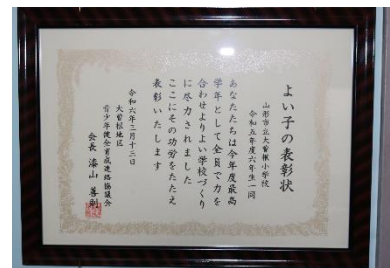 よい子の表彰状
山形市立大曽根小学校
令和五年度六年生一同
あなたたちは今年度最高
学年として全員で力を
合わせよりよい学校づくり
に尽力されました
ここにその功労をたたえ
表彰いたします
令和六年三月十三日
大曽根地区
青少年健全育成連絡協議会
会長 漆山 善則